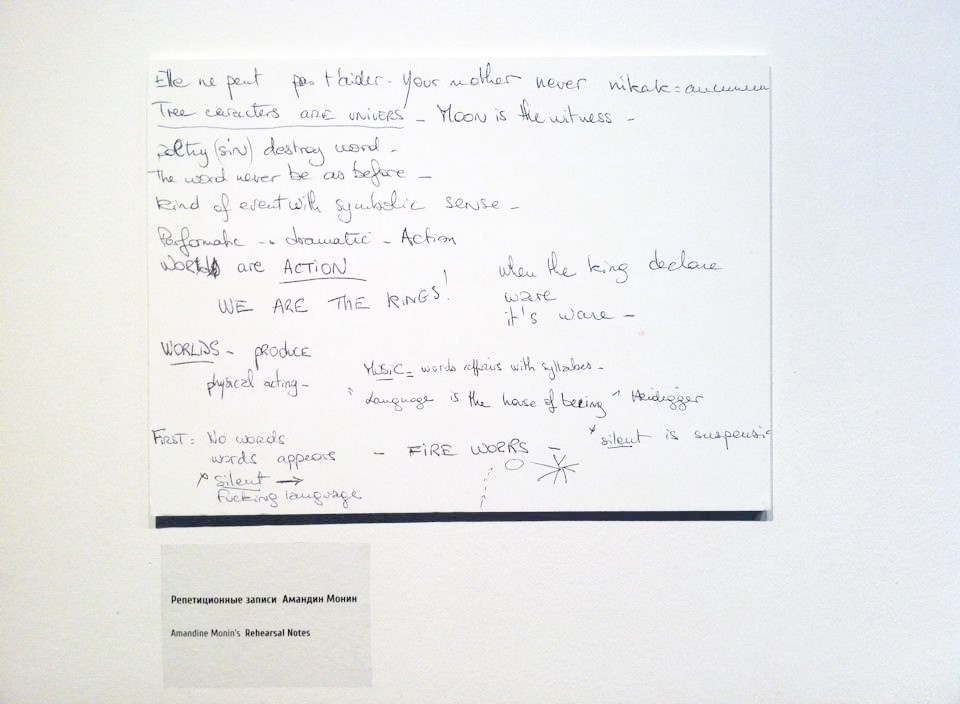 Elle ne peut pas t'aider - Your mother never nikak =
Tree caracters are univers - Moon is the witness -
Poetry (sin) destroy word -
The word never be as before -
Kind of event with symbolic sense -
Performatic -- dramatic - Action
are ACTION
WE ARE THE KINGS!
when the king declare
ware
it's ware -
WORLDS - produce
physical acting -
MUSIC = words affairs with syllabes -
" Language is the house of beeing " Heidegger
FIRST: No words
words appears
* silent →
Fucking language
- FIRE WORRS -
* silent is suspensio
Репетиционные записи Амандин Монин
Amandine Monin's Rehearsal Notes